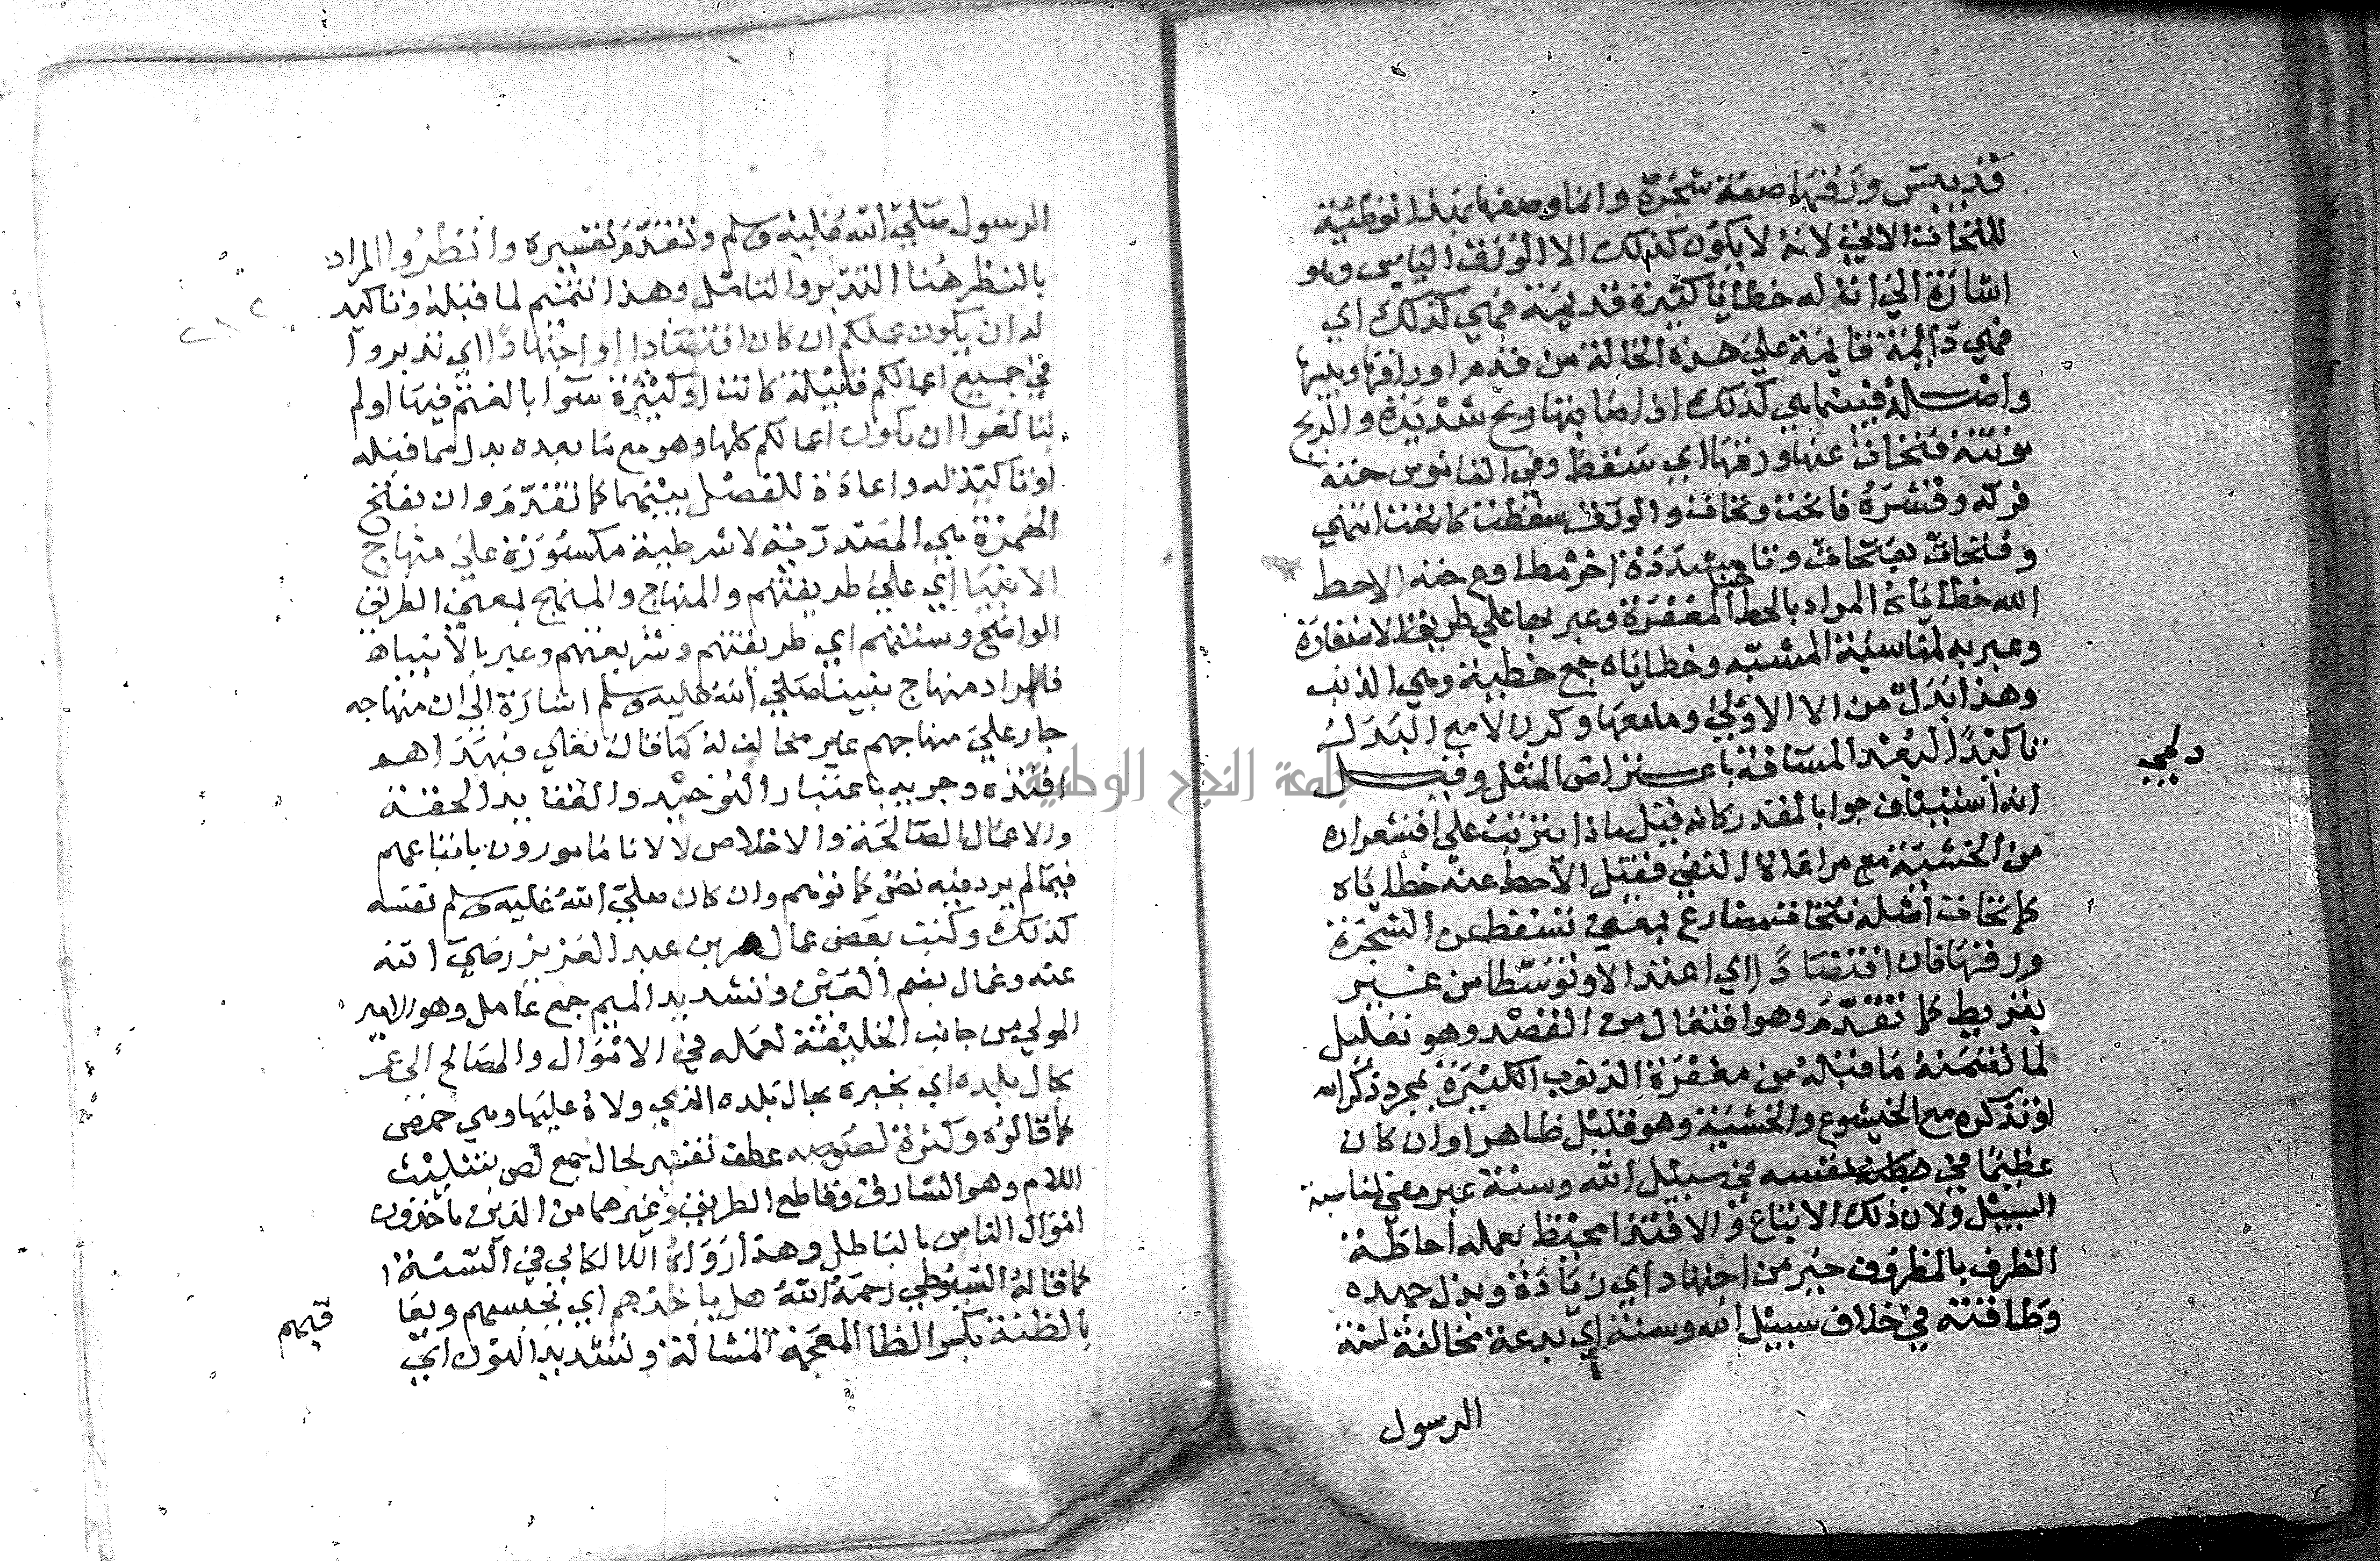 قد يبس ورقها صفة شجرة وانما وصفها بهذا توطئة
للتحات الاتي لانه لا يكون كذلك الا الورق اليابس وهو
اشارة الي انه له خطايا كثيرة قديمة فهي كذلك اي
فهي دائمة قايمة علي هذه الحالة من قدم اوراقها ويبسها
واصله فبينما هي كذلك اذ اصابتها ريح شديدة والريح
مؤنثة فتحات عنها ورقها اي سقط وفي القاموس حته
فركه وقشره فانحت وتحات والورق سقطت كانحت انتهي
وفتحات بفتحات وتا مشددة اخره مطاوع حته الاحط
الله خطاياه المراد بالحط المغفرة وعبر بها علي طريق الاستعارة
وعبر به لمناسبة المشبه وخطاياه جمع خطيئة وهي الذنب
وهذا بدل من الا الاولي وما معها وكرر الا مع البدل
تاكيدا لبعد المسافة باعتراض المثل وقيل
دلهي
انه استيناف جوابا لمقدر كانه قيل ماذا يترتب علي اقشعراره
من الخشية مع مراعاة النفي فقيل الا حط عنه خطاياه
كما تحات اصله تتحات مضارع بمعني تسقط عن الشجرة
ورقها فان اقتصادا اي اعتدالا وتوسطا من غير
تفريط كما تقدم وهو افتعال من القصد وهو تعليل
لما تضمنه ما قبله من مغفرة الذنوب الكثيرة بمجرد ذكر الله
او تذكره مع الخشوع والخشية وهو قليل ظاهرا وان كان
عظيما في نفسه في سبيل الله وسنة عبر معني لمناسبة
السبيل ولان ذلك الاتباع والاقتدا محيط بعمله احاطة
الظرف بالمظروف خير من اجتهاد اي زيادة وبذل جهده
وطاقته في خلاف سبيل الله وسنة اي بدعة مخالفة لسنة
الرسول
الرسول صلي الله عليه وسلم وتقدم تفسيره وانظروا المراد
بالنظر هنا التدبر والتامل وهذا تتميم لما قبله وتاكيد
له ان يكون عملكم ان كان اقتصادا او اجتهادا اي تدبروا
في جميع اعمالكم قليلة كانت او كثيرة سوا بالغتم فيها او لم
تبالغوا ان يكون اعمالكم كلها وهو مع ما بعده بدل مما قبله
او تاكيد له واعادة للفصل بينهما كما تقدم وان بفتح
الهمزة هي المصدرية لا شرطية مكسورة علي منهاج
الانبيا اي علي طريقتهم والمنهاج والمنهج بمعني الطريق
الواضح وسنتهم اي طريقتهم وشريعتهم وعبر بالانبياء
فالمراد منهاج نبينا صلي الله عليه وسلم اشارة الي ان منهاجه
جار علي منهاجهم غير مخالف له كما قال تعالي فبهداهم
اقتده وجريه باعتبار التوحيد والعقايد الحقة
والاعمال الصالحة والاخلاص لا لانا مامورون باتباعهم
فيما لم يرد فيه نص كما توهم وان كان صلي الله عليه وسلم نفسه
كذلك وكتب بعض عمال عمر بن عبد العزيز رضي الله
عنه وعمال بضم العين وتشديد الميم جمع عامل وهو الامير
المولي من جانب الخليفة لعمله في الاموال والمصالح الي عمر
بحال بلده اي يخبره بحال بلده الذي ولاه عليها وهي حمص
كما قالوه وكثرة لصوصه عطف تفسير لحال جمع لص بتثليث
اللام وهو السارق وقاطع الطريق وغيرهما من الذين ياخذون
اموال الناس بالباطل وهذا رواه اللالكائي في السنة
كما قاله السيوطي رحمه الله هل ياخذهم اي يحبسهم ويعا
قبهم
بالظنة بكسر الظا المعجمة المشالة وتشديد النون اي
٢١٢
جامعة النجاح الوطنية